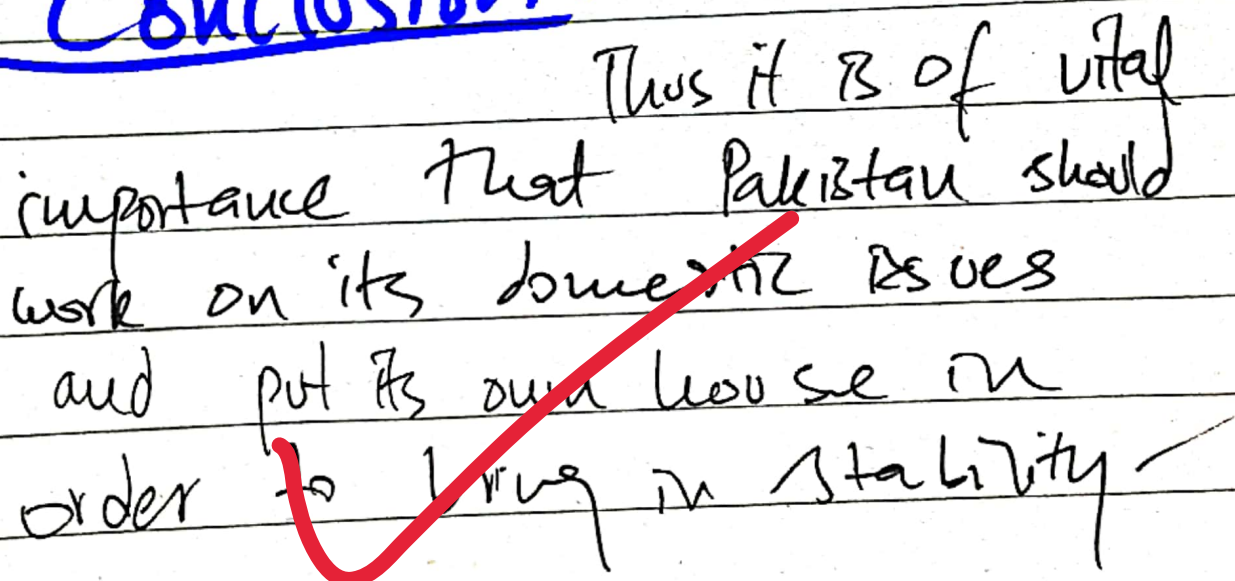 Conclusion
Thus it is of vital
importance that Pakistan should
work on its domestic issues
and put its own house in
order to bring in stability